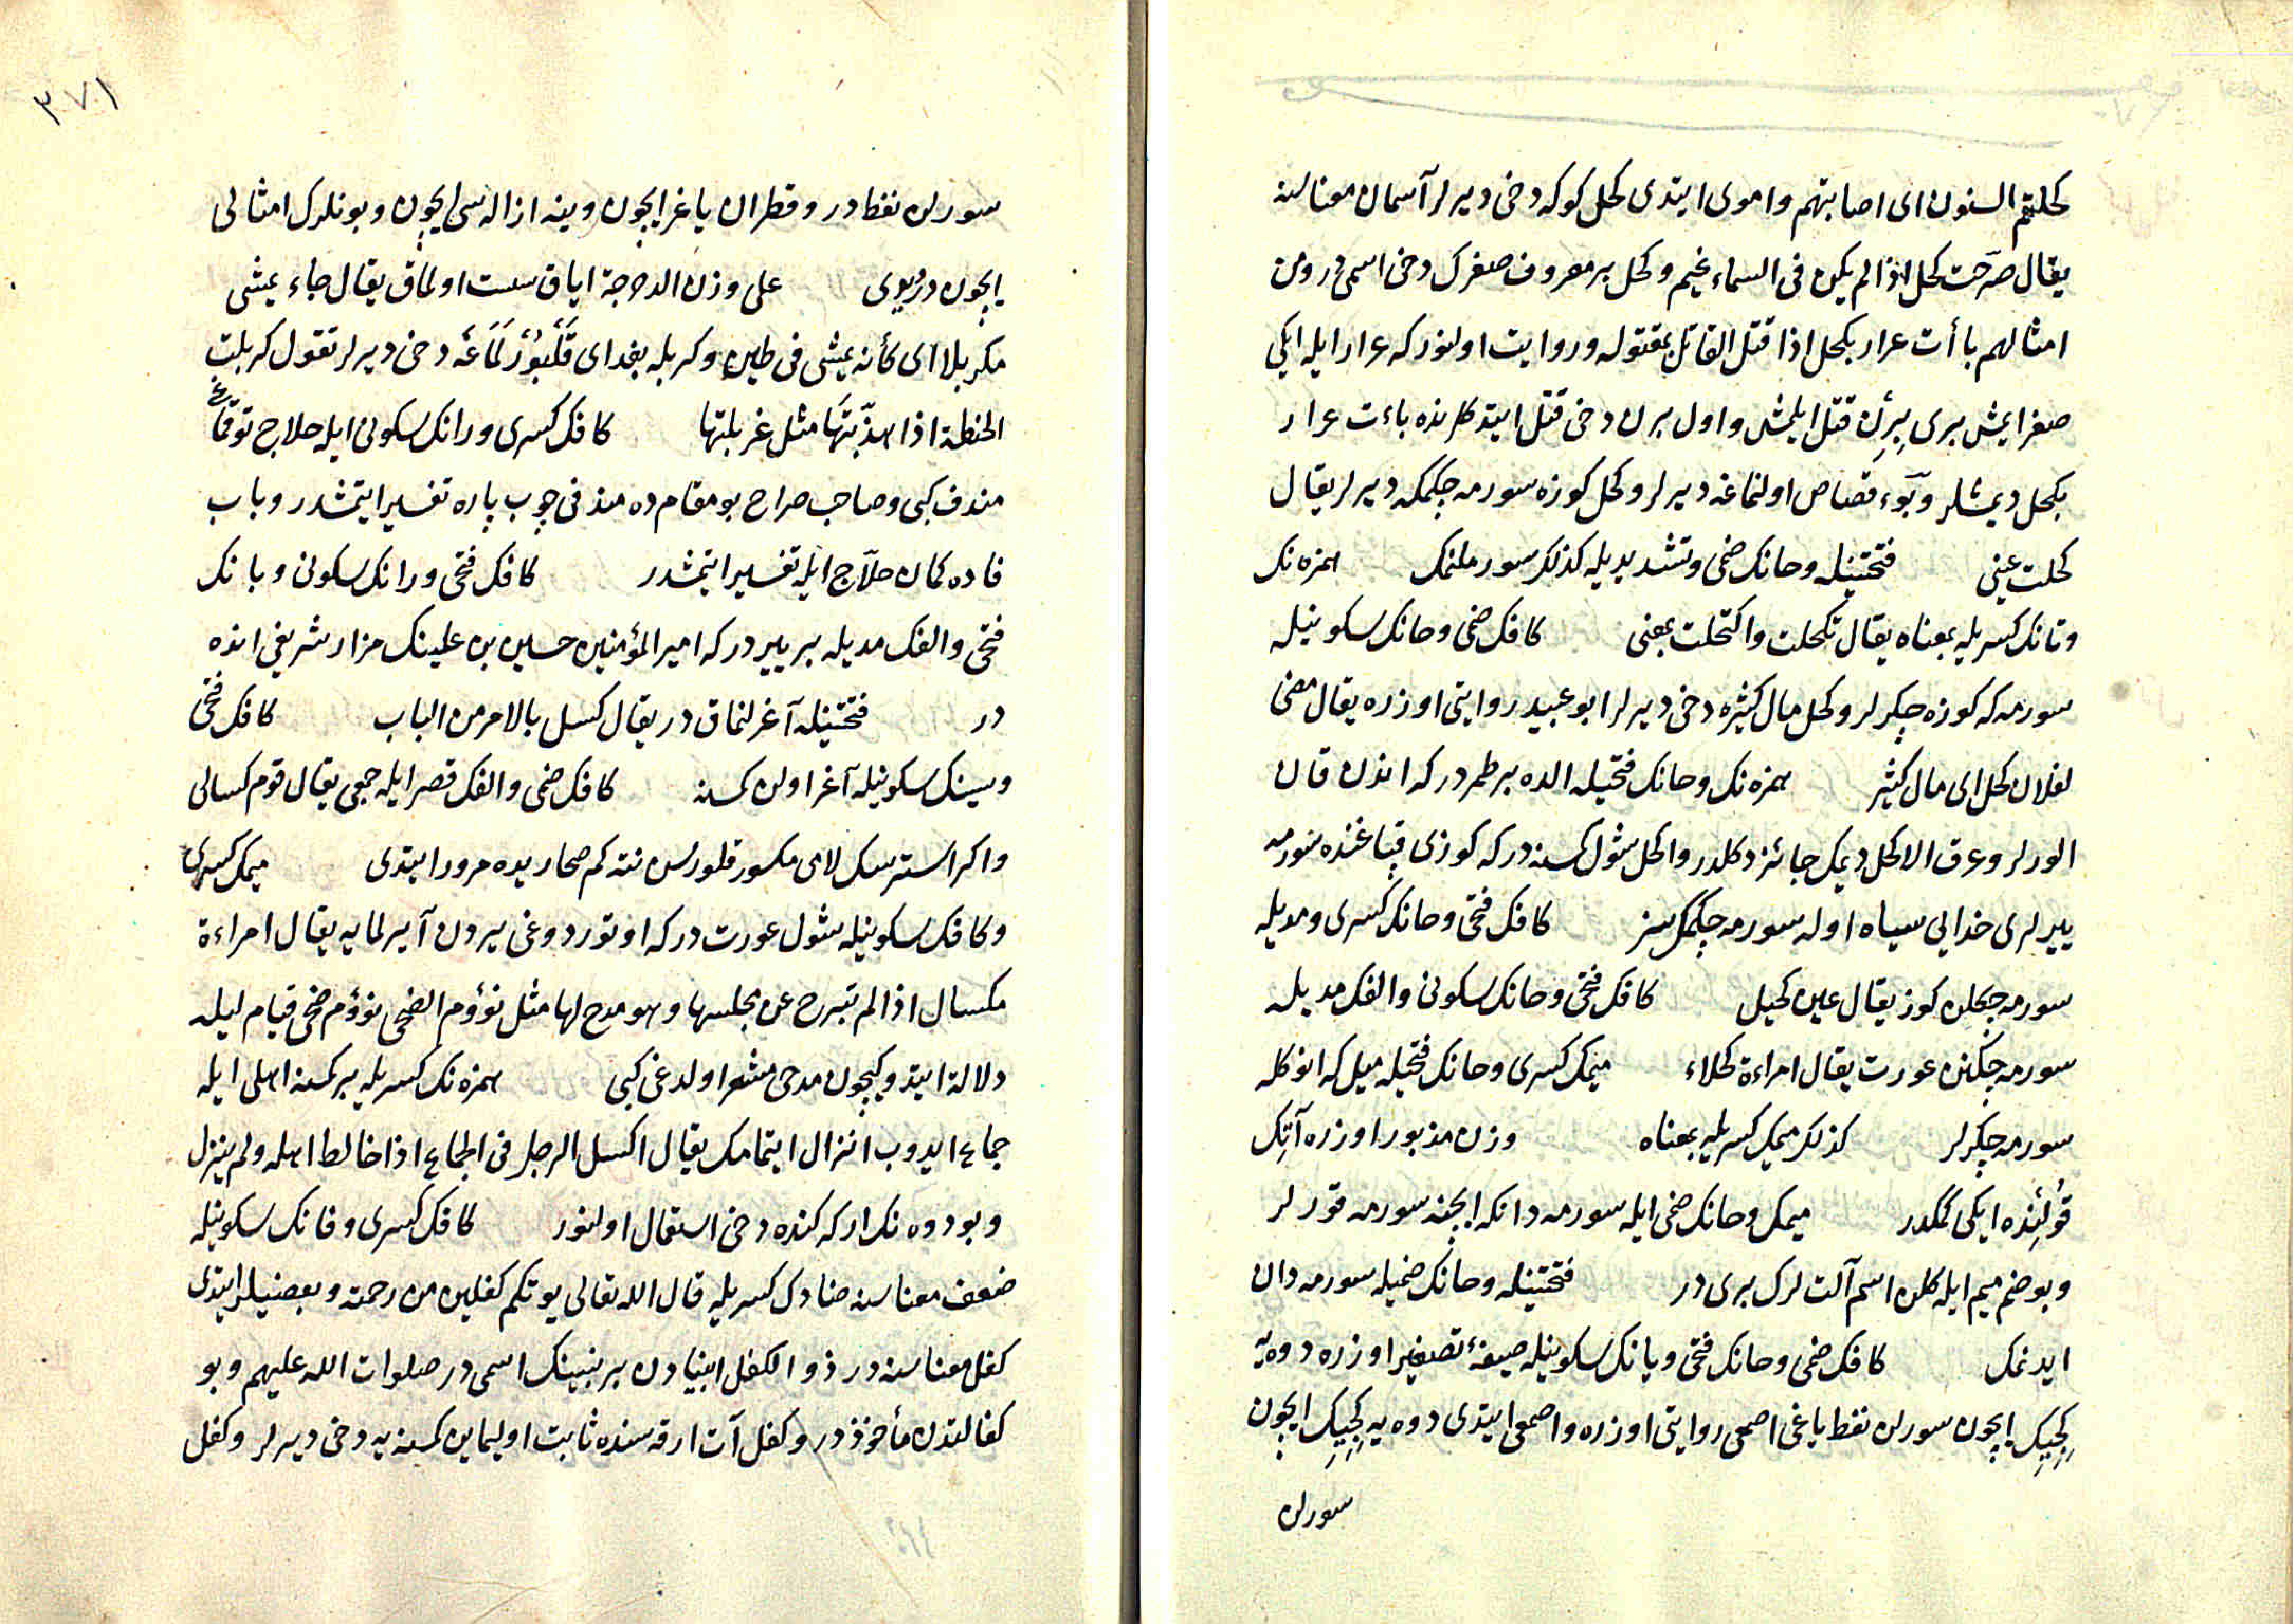 كحلتهم السنون اى اصابتهم واموى ايتدى كحل كوكه دخى ديرلر آسمان معناسنه
يقال صرّحت كحل اذا لم يكن فى السماء غيم وكحل بر معروف صغرك دخى اسمى در ومن
امثالهم باأت عرار بكحل اذا قتل القاتل بمقتوله وروايت اولنور كه عرار ايله ايكى
صغر ايمش برى بِرِن قتل ايلمش واول برن دخى قتل ايتدكلرنده باءت عرار
بكحل ديمشلر وبَوَء قصاص اولنماغه ديرلر وكحل كوزه سورمه چكمكه ديرلر يقال
كحلت عينى فتحتينله وحانك ضمى وتشديديله كذلك سورملنمك همزه نك
وتانك كسريله بمعناه يقال تكحلت واكتحلت بمعنى كافك ضمى وحانك سكونيله
سورمه كه كوزه چكرلر وكحل مال كثيره دخى ديرلر ابو عبيد روايتى اوزره يقال مضى
لفلان كحل اى مال كثير همزه نك وحانك فتحيله الده بر طمردر كه اندن قان
الورلر وعرق الاكحل ديمك جائز دكلدر واكحل شول كمسنه در كه كوزى قپاغنده سورمه
ييرلرى خدايى سياه اوله سورمه چكمكسز كافك فتحى وحانك كسرى ومديله
سورمه چكلن كوز يقال عين كحيل كافك فتحى وحانك سكونى والفك مديله
سورمه چكنن عورت يقال امراءة كحلاء ميمك كسرى وحانك فتحيله ميل كه انوكله
سورمه چكرلر كذلك ميمك كسريله بمعناه وزن مذبور اوزره آتِك
قولنده ايكى كمكدر ميمك وحانك ضمى ايله سورمه دانكه ايچنه سورمه قورلر
وبو ضم ميم ايله كلن اسم آلت لرك برى در فتحتينله وحانك ضميله سورمه دان
ايدنمك كافك ضمى وحانك فتحى ويانك سكونيله صيغهٔ تصغير اوزره دوه يه
كِجِيك ايچون سورلن نفط ياغى اصمعى روايتى اوزره واصمعى ايتدى دوه يه كِجِيك ايچون
سورلن
٣٧١
سورلن نفطدر وقطران ياغر ايچون وينه ازاله سى ايچون وبونلرك امثالى
ايچون در ديوى على وزن الدحرجة اياق سست اولماق يقال جاء يمشى
مكربلا اى كأنه يمشى فى طين وكربله بغداى قَلبُورْلَمَاغَه دخى ديرلر تقول كربلت
الحنطة اذا هذّبتَها مثل غربلتها كافك كسرى ورانك سكونى ايله حلاج توقماغى
مندف كبى وصاحب صراح بو مقامده مندفى چوب پاره تفسير ايتمشدر وباب
فاده كمان حلّاج ايله تفسير ايتمشدر كافك فتحى ورانك سكونى وبانك
فتحى والفك مديله بر ييردر كه امير المؤمنين حسين بن علينك مزار شريفى انده
در فتحتينله آغرلنماق در يقال كسل بالامر من الباب كافك فتحى
وسينك سكونيله آغر اولن كمسنه كافك ضمى والفك قصر ايله جمعى يقال قوم كسالى
واكر استرسك لامى مكسور قلورسن نته كم صحاريده مرور ايتدى ميمك كسرى
وكافك سكونيله شول عورت در كه اوتوردوغى ييردن آيرلمايه يقال امراءة
مكسال اذا لم تبرح عن مجلسها وهو مدح لها مثل نؤوم الضحى نؤوم ضحى قيام ليله
دلالة ايتدوكيچون مدحى مشعر اولدغى كبى همزه نك كسريله بر كمسنه اهلى ايله
جماع ايدوب انزال ايتمامك يقال اكسل الرجل فى الجماع اذا خالط اهله ولم ينزل
وبو دوه نك اركه كنده دخى استعمال اولنور كافك كسرى وفانك سكونيله
ضعف معناسنه ضادك كسريله قال الله تعالى يوتكم كفلين من رحمته وبعضيلر ايتدى
كفل معناسنه در ذو الكفل انبيادن بر نبينك اسمى در صلوات الله عليهم وبو
كفالتدن مأخوذدر وكفل آت ارقه سنده ثابت اوليماين كمسنه يه دخى ديرلر وكفل